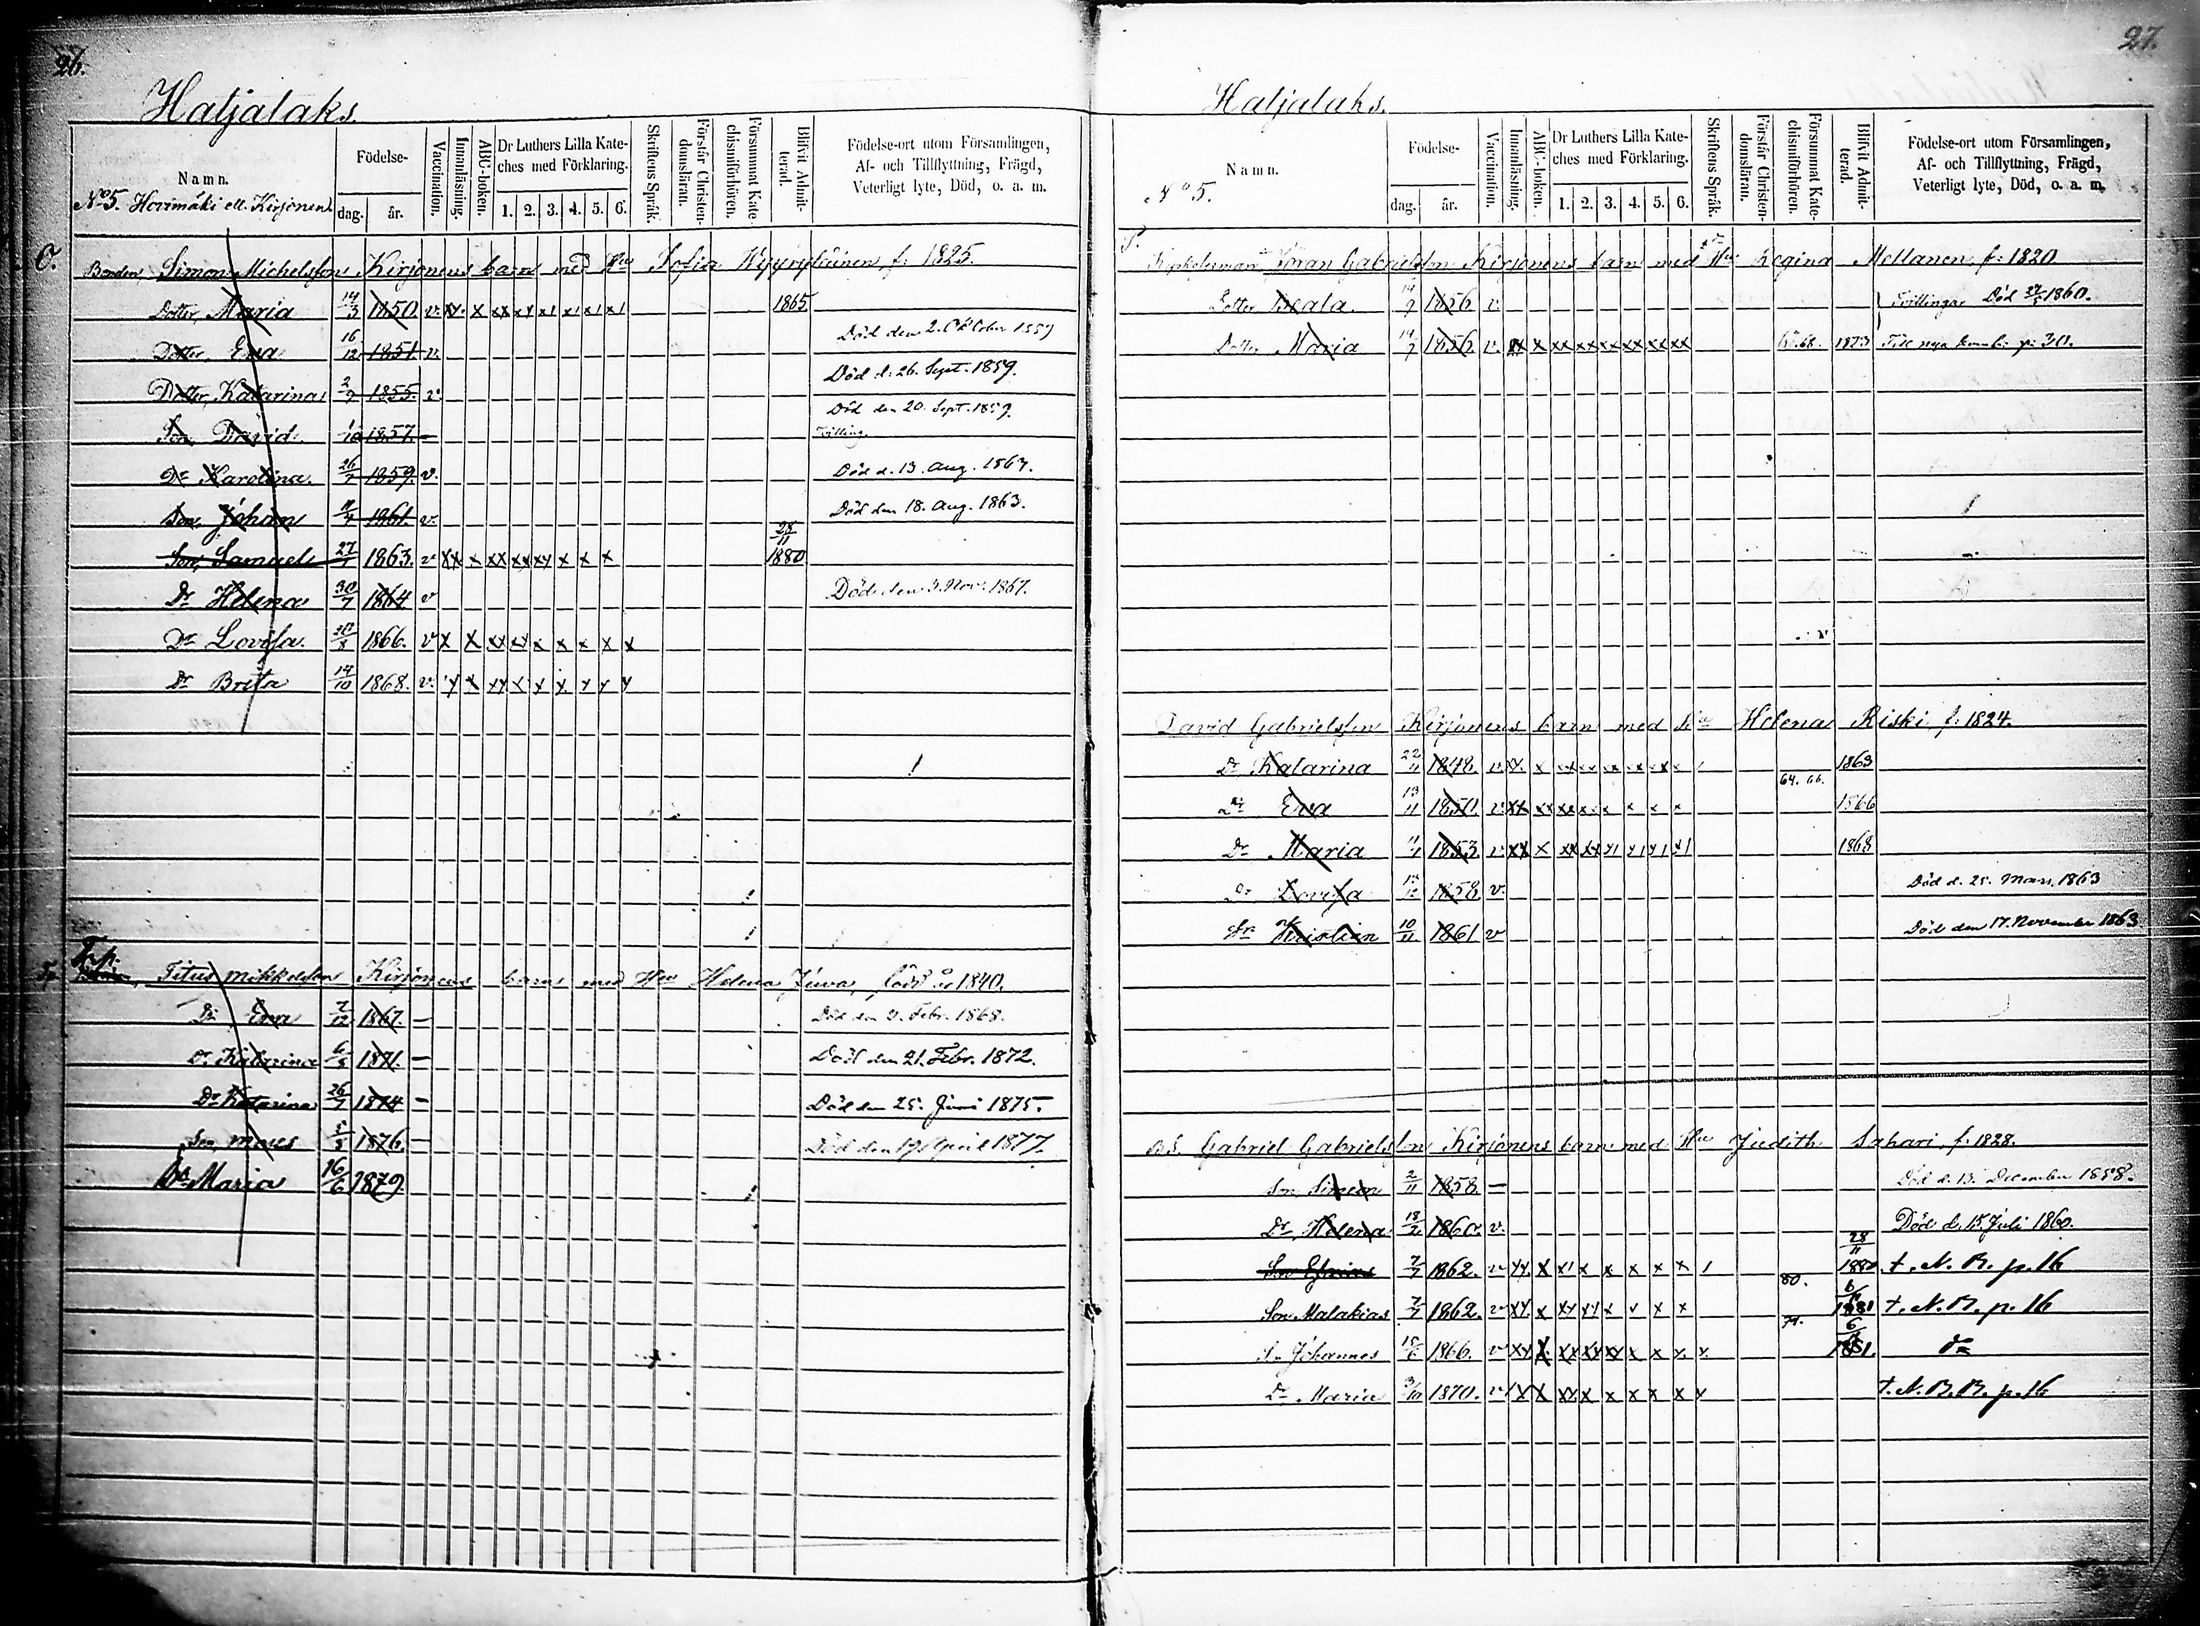 26.
Haljalaks.
Namn.
No 5. Hovimäki ell. Kirjonen.
Födelse-
dag. år.
Vaccination.
Innanläsning.
ABC-boken.
Dr Luthers Lilla Kate-
ches med Förklaring.
1. 2. 3. 4. 5. 6.
Skriftens Språk.
Förstår Christen-
domsläran.
Försummat Kate-
chismiförhören.
Blifvit Admit-
terad.
Födelse-ort utom Församlingen,
Af- och Tillflyttning, Frägd,
Veterligt lyte, Död, o. a. m.
Bonden, Simon Michelsson Kirjonens barn med Hu Sofia f. 1825.
Dotter, Maria 14/3 1850. v. xx x xx x x1 x1 x1 x1 1865.
Dotter, Eva 16/12 1851. v. Död den 2. October 1859
Dotter, Katarina 2/9 1855. v. Död d. 26. Sept. 1859.
Son, David 1/10 1857. — Död den 20. Sept. 1859.
Tvilling.
Dr Karolina. 26/7 1859. v. Död d. 13. Aug. 1863.
Son, Johan 1861. v. Död den 18. Aug. 1863.
Son, Samuel 27/1 1863. v xx x xx xx xx x x x 28/11 1880
Dr Helena 30/7 1864 v Död den 3. Nov. 1867.
Dr Lovisa. 20/8 1866. v x x xx xx x x x x x
Dr Brita 14/10 1868. v. x x xx x x x x x x
Trp.
Titus Mikkelsson Kirjonens barn med Hu Helena Juva, född år 1840.
Dr Eva 7/12 1867. — Död den 2. Febr. 1868.
Dr Katarina 6/8 1871. — Död den 21. Febr. 1872.
Dr Katarina 26/7 1874 — Död den 25. Juni 1875.
Son, Moses 5/8 1876. — Död den 19 April 1877.
Dr Maria 16/6 1879.
27.
Haljalaks.
Namn.
No 5.
Födelse-
dag. år.
Vaccination.
Innanläsning.
ABC-boken.
Dr Luthers Lilla Kate-
ches med Förklaring.
1. 2. 3. 4. 5. 6.
Skriftens Språk.
Förstår Christen-
domsläran.
Försummat Kate-
chismiförhören.
Blifvit Admit-
terad.
Födelse-ort utom Församlingen,
Af- och Tillflyttning, Frägd,
Veterligt lyte, Död, o. a. m.
Göran Gabrielsson Kirjonens barn med Hu Regina Mellanen f. 1820
Dotter Beata. 14/9 1856 v. Tvillingar Död 1860.
Dotter Maria 14/9 1856. v. xx x xx xx xx xx xx xx 68. 1873 p. 30.
David Gabrielsson Kirjonens barn med Hu Helena Riski, f. 1824.
Dr Katarina 22/11 1848. v. xx. x xx xx x x x x 1863
64. 66.
Dr Eva 13/11 1850. v xx xx xx x x x x x 1866
Dr Maria 1853. v xx x xx xx x1 x1 x1 x1 1868
Dr Lovisa 1858. v. Död d. 25. Mars. 1863
Sn Kristian 10/11 1861 v Död den 17. November 1863
Gabriel Gabrielsson Kirjonens barn med Hu Judith Sahari, f. 1828.
Son Simon 2/11 1858. — Död d. 13. December 1858.
Dr, Helena 18/2 1860. v. Död d. 15 Juli 1860.
Son 7/7 1862. v xx. x x1 x x x x x 1 28/11 1880 t. N. B. p. 16
80.
Son Malakias 7/7 1862. v xx. x xx xx x x x x 6/11 1881 t. N. B. p. 16
Sn Johannes 15/6 1866. v xx x xx xx xx x x x x 6/11 1881. do
Dr Maria 3/10 1870. v x x xx x x x x x x t. N. B. B. p. 16